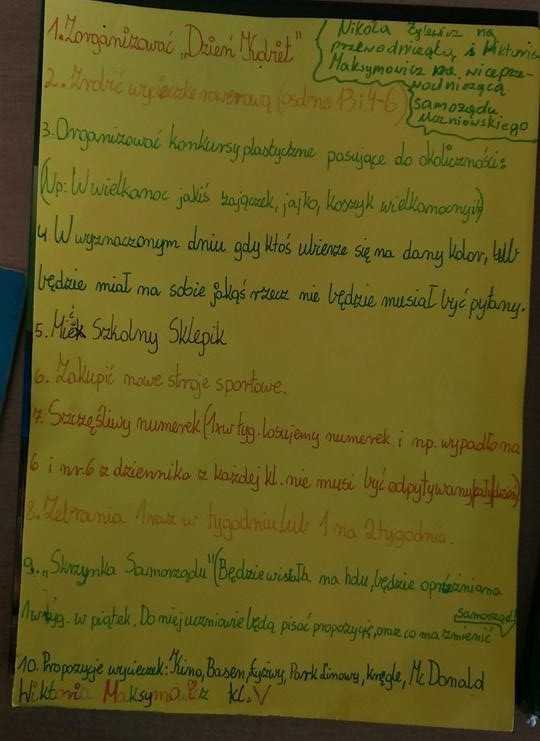 1. Zorganizować „Dzień Kobiet"
Nikola Żylewicz na
przewodniczącą, i Wiktoria
Maksymowicz na wiceprze-
wodniczącą
samorządu
Uczniowskiego
2. Zrobić wycieczkę rowerową (osobno 1-3 i 4-6)
3. Organizować konkursy plastyczne pasujące do okoliczności:
(Np: W wielkanoc jakiś zajączek, jajko, koszyk wielkanocny itp)
4. W wyznaczonym dniu gdy ktoś ubierze się na dany kolor, lub
będzie miał na sobie jakąś rzecz nie będzie musiał być pytany.
5. Mieć Szkolny Sklepik
6. Zakupić nowe stroje sportowe.
7. Szczęśliwy numerek (1 rw tyg. losujemy numerek i np. wypadło na
6 i nr. 6 z dziennika z każdej kl. nie musi być odpytywany cały dzień)
8. Zebrania 1 raz w tygodniu lub 1 na 2 tygodnie.
9. „Skrzynka Samorządu" (Będzie wisiała na holu, będzie opróżniana
samorząd)
1 w tyg. w piątek. Do niej uczniowie będą pisać propozycje, oraz co ma zmienić
10. Propozycje wycieczek: Kino, Basen, Łyżwy, Park Linowy, Kręgle, Mc Donald
Wiktoria Maksymowicz kl. V